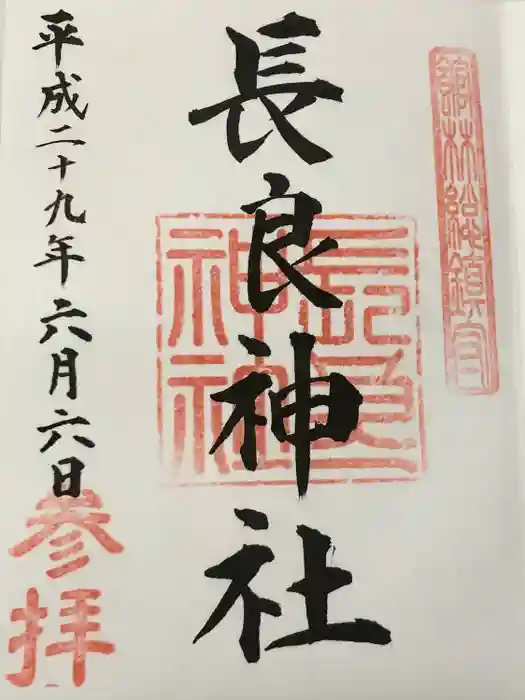 館林総鎮宮
長良神社
長良
神社
平成二十九年六月六日
参拝